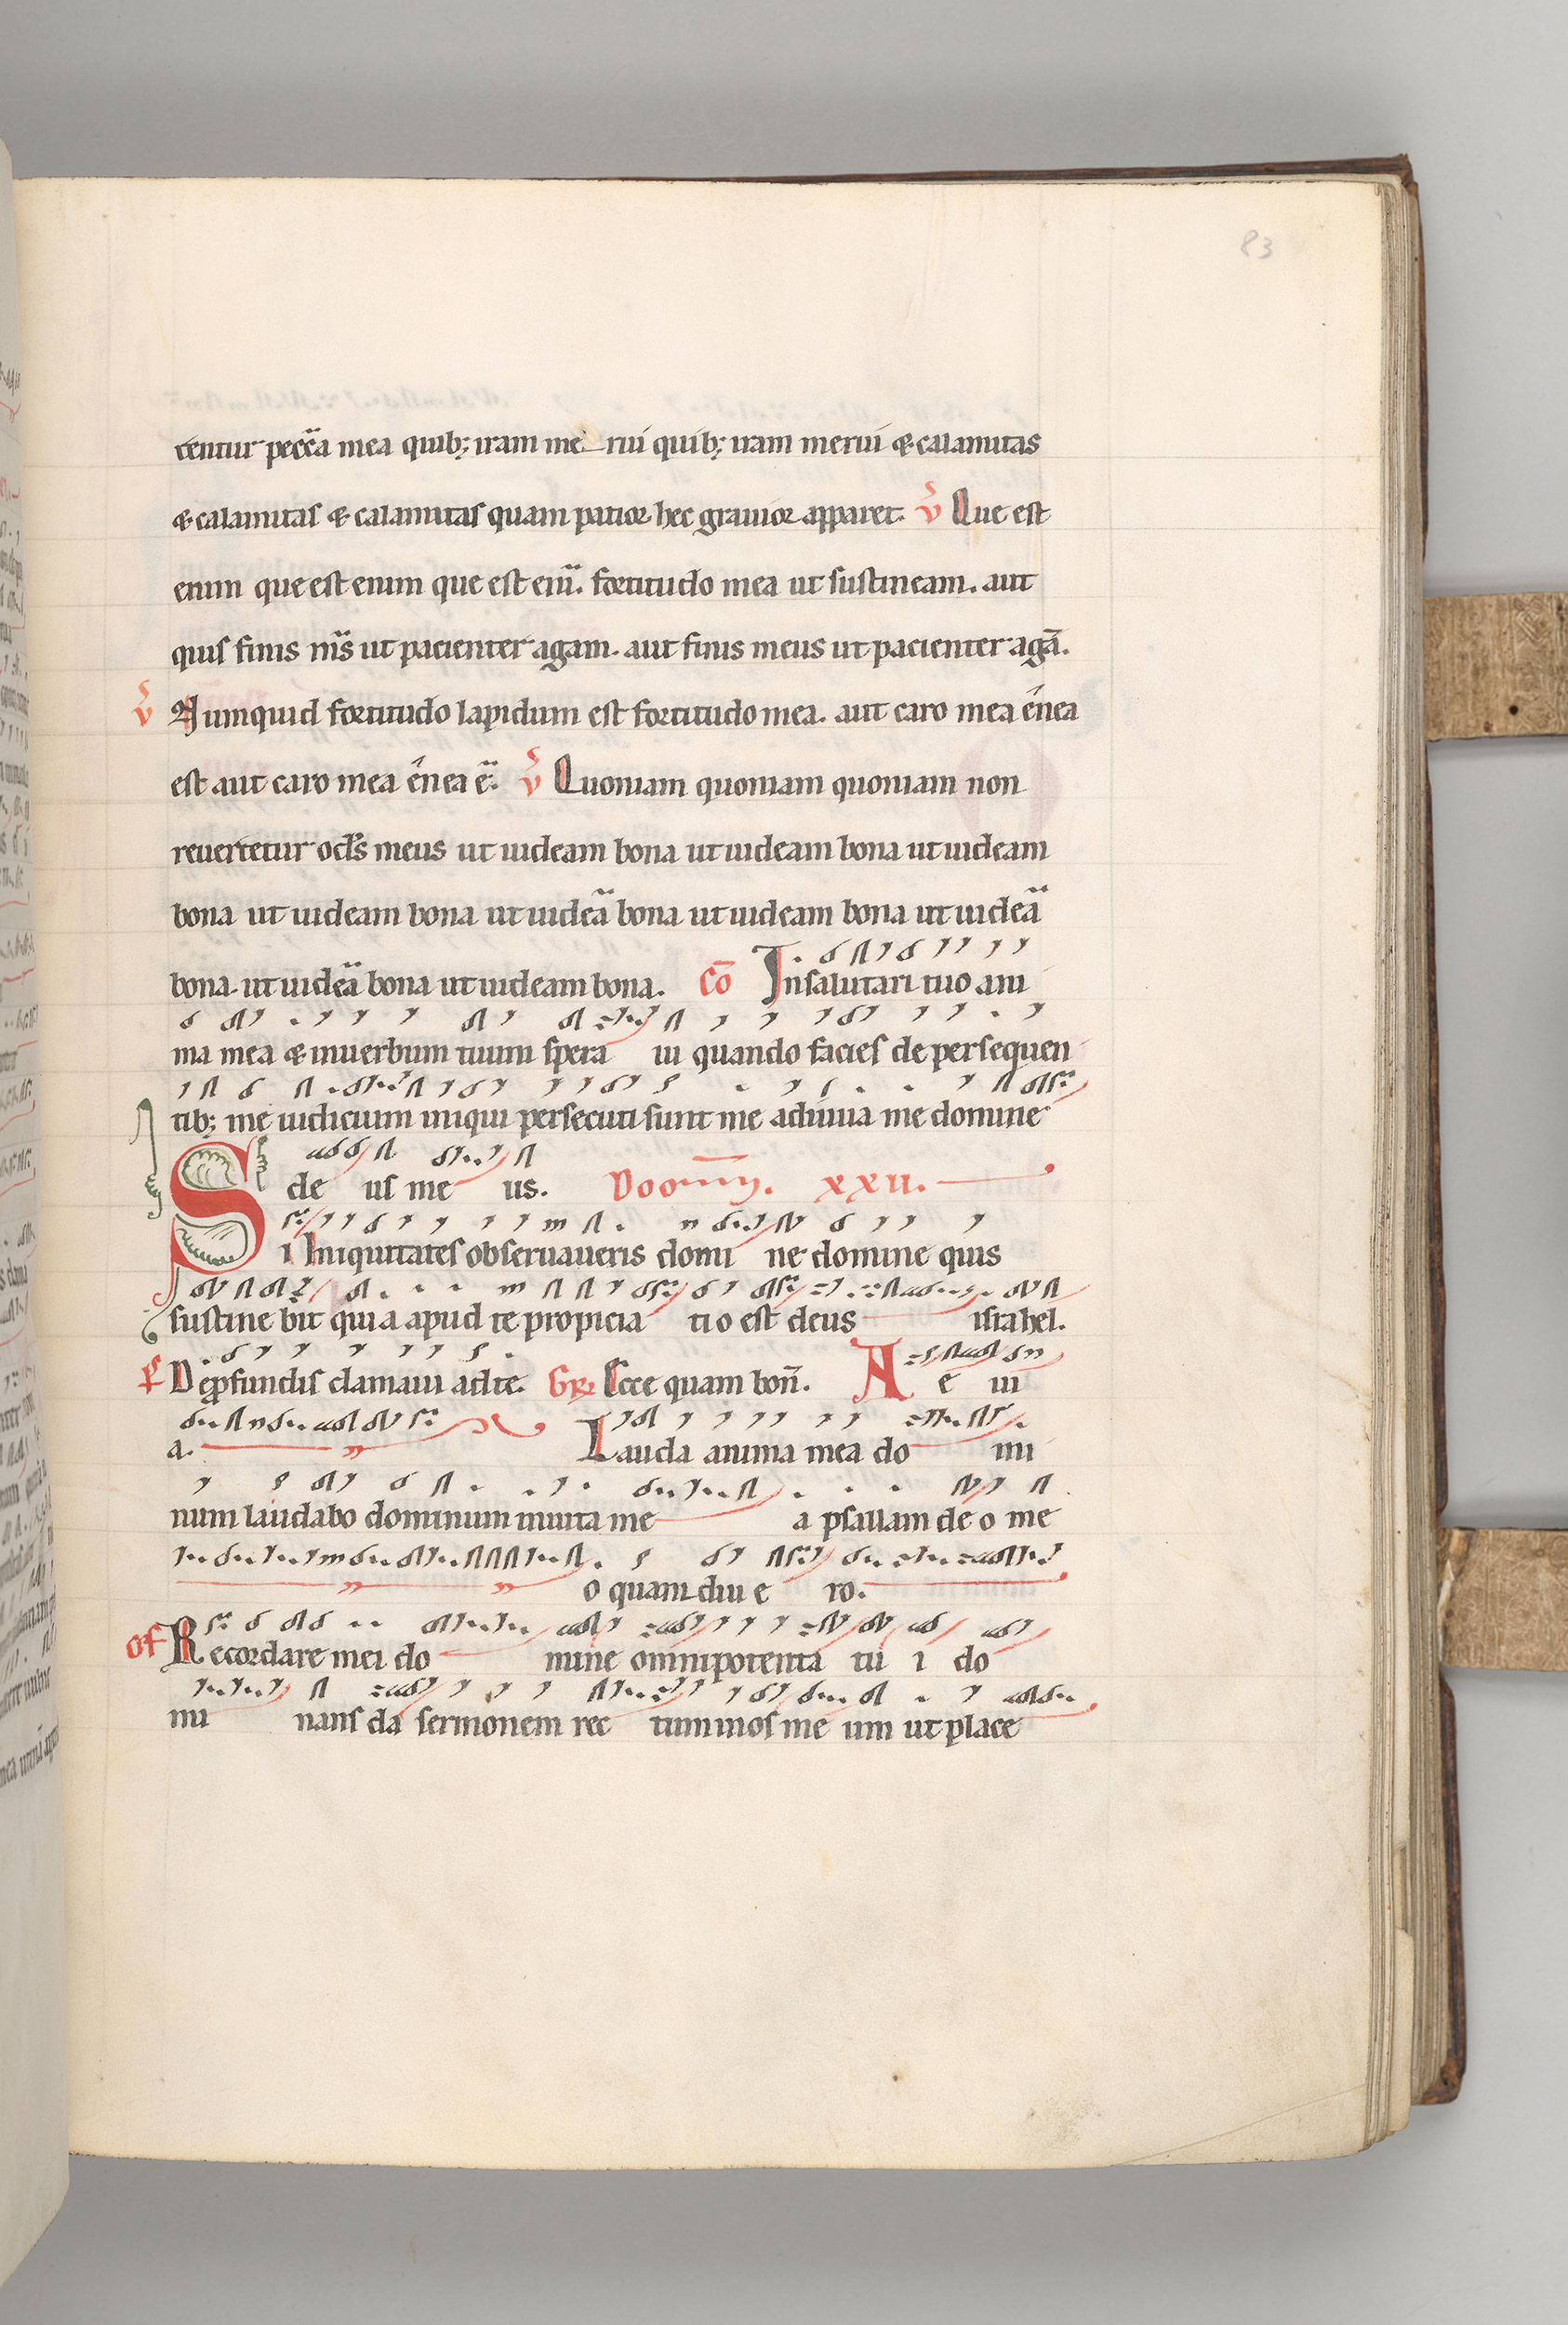 83
tentur pecc̄a mea quib; iram me rui quib; iram merui & calamitas
& calamitas & calamitas quam patior hec grauior apparet. v̄ Que est
enim que est enim que est eni̅. fortitudo mea ut sustineam. aut
quis finis m̅s ut pacienter agam. aut finis meus ut pacienter aga̅.
v̄ Numquid fortitudo lapidum est fortitudo mea. aut caro mea énea
est aut caro mea énea e̅. v̄ Quoniam quoniam quoniam non
reuertetur oc̅ls meus ut uideam bona ut uideam bona ut uideam
bona ut uideam bona ut uidea̅ bona ut uideam bona ut uidea̅
bona. ut uidea̅ bona ut uideam bona. Co̅ In salutari tuo ani
ma mea & in uerbum tuum spera ui quando facies de persequen
tib; me iudicium iniqui persecuti sunt me adiuua me domine
de us me us. Dom. xxii.
Si Iniquitates obseruaueris domi ne domine quis
sustine bit quia apud te propicia ti o est deus israhel.
Ps De p̲fundis clamaui ad te. Gr. Ecce quam bon̅. A e ui
a. Lauda anima mea do mi
num laudabo dominum in uita me a psallam de o me
o quam diu e ro.
Of Recordare mei do mine omnipotenta tu i do
mi nans da sermonem rec tum in os me um ut place